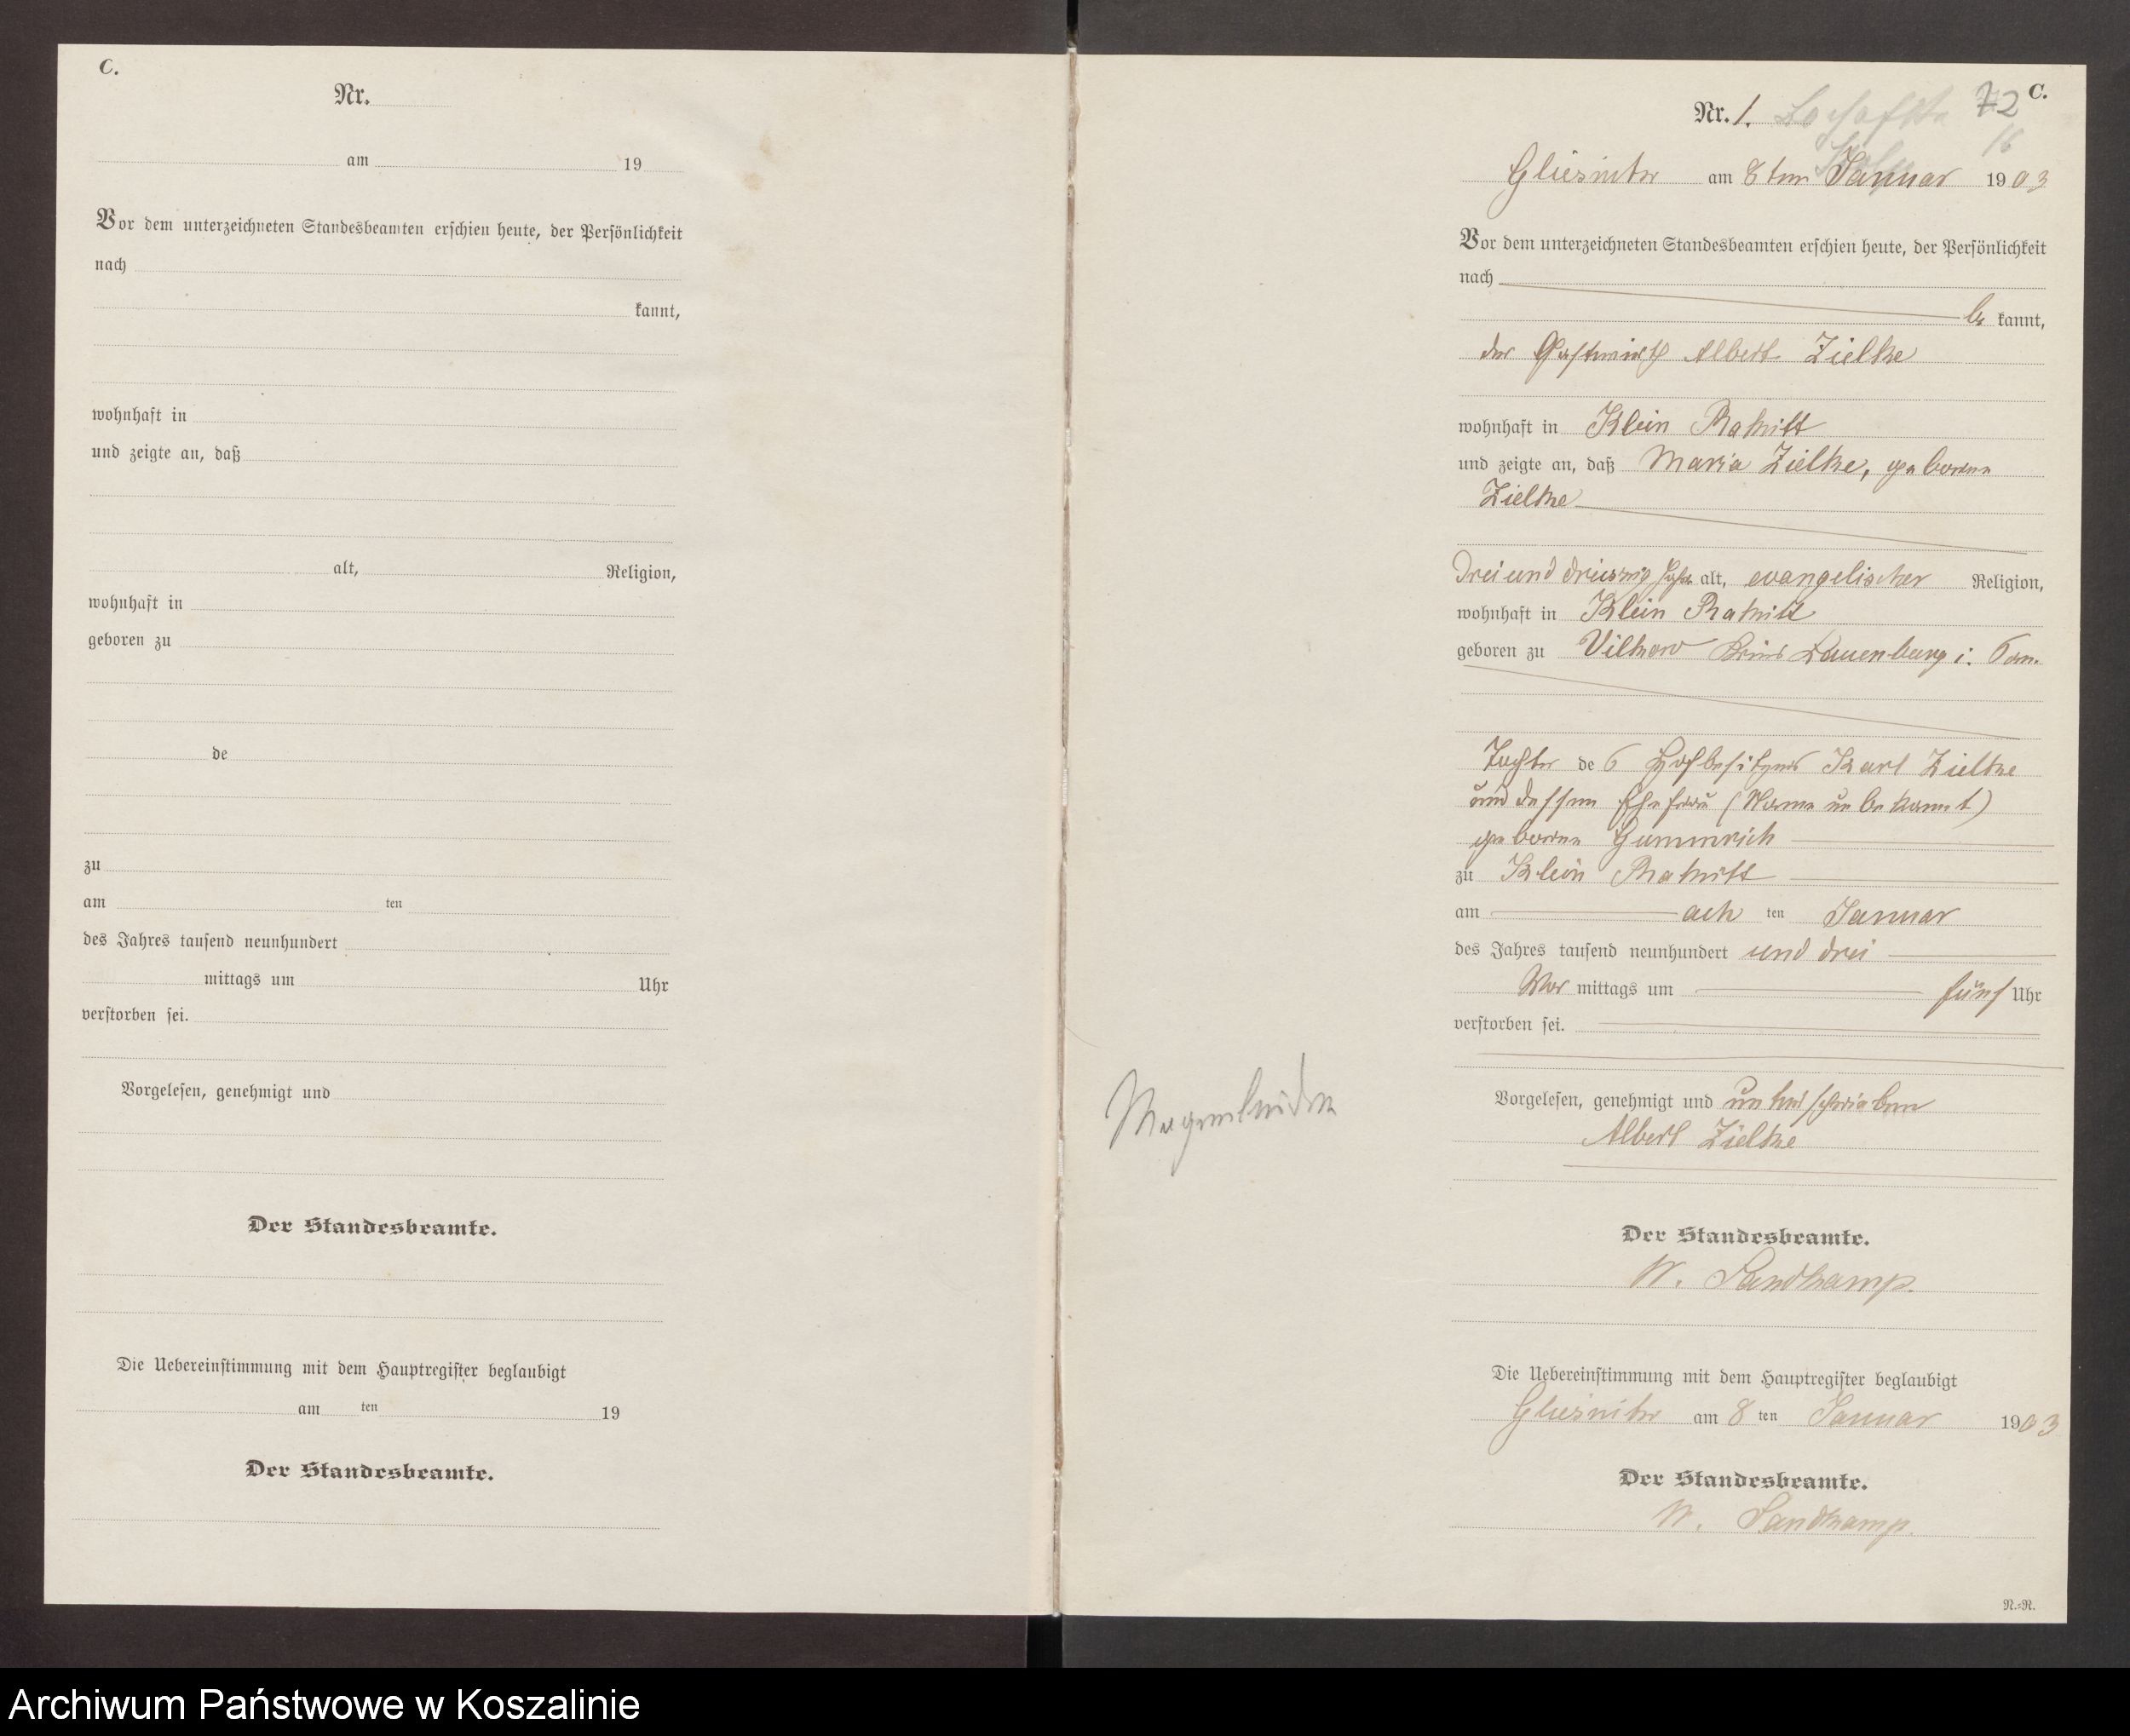 C.
Nr.
am 19
Vor dem unterzeichneten Standesbeamten erschien heute, der Persönlichkeit
nach
kannt,
wohnhaft in
und zeigte an, daß
alt, Religion,
wohnhaft in
geboren zu
de
zu
am ten
des Jahres tausend neunhundert
mittags um Uhr
verstorben sei.
Vorgelesen, genehmigt und
Der Standesbeamte.
Die Uebereinstimmung mit dem Hauptregister beglaubigt
am ten 19
Der Standesbeamte.
Magenleiden
C.
72
Nr. 1.
16
Gliesnitz am 8ten Januar 1903
Vor dem unterzeichneten Standesbeamten erschien heute, der Persönlichkeit
nach
be kannt,
der Gastwirth Albert Zielke
wohnhaft in Klein Rakitt
und zeigte an, daß Maria Zielke, geborene
Zielke
Drei und dreiszig Jahre alt, evangelischer Religion,
wohnhaft in Klein Rakitt
geboren zu Vilkow Kreis Lauenburg i. Pom.
Tochter des Hofbesitzers Karl Zielke
und dessen Ehefrau (Name unbekannt)
geborene Gummrich
zu Klein Rakitt
am ach ten Januar
des Jahres tausend neunhundert und drei
Vor mittags um fünf Uhr
verstorben sei.
Vorgelesen, genehmigt und unterschrieben
Albert Zielke
Der Standesbeamte.
W. Sandkamp.
Die Uebereinstimmung mit dem Hauptregister beglaubigt
Gliesnitz am 8 ten Januar 1903
Der Standesbeamte.
W. Sandkamp.
N.=N.
Archiwum Państwowe w Koszalinie